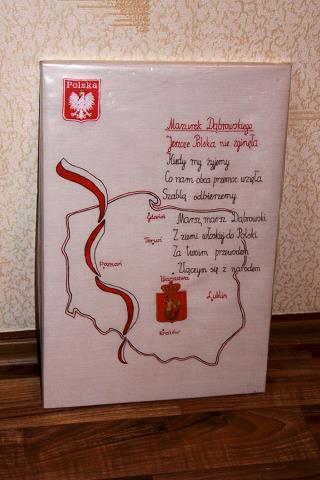 Polska
Mazurek Dąbrowskiego
Jeszcze Polska nie zginęła
Kiedy my żyjemy
Co nam obca przemoc wzięła
Szablą odbierzemy
Marsz, marsz Dąbrowski
Z ziemi włoskiej do Polski
Za twoim przewodem
Złączym się z narodem
Gdańsk
Toruń
Poznań
Warszawa
Lublin
Kraków